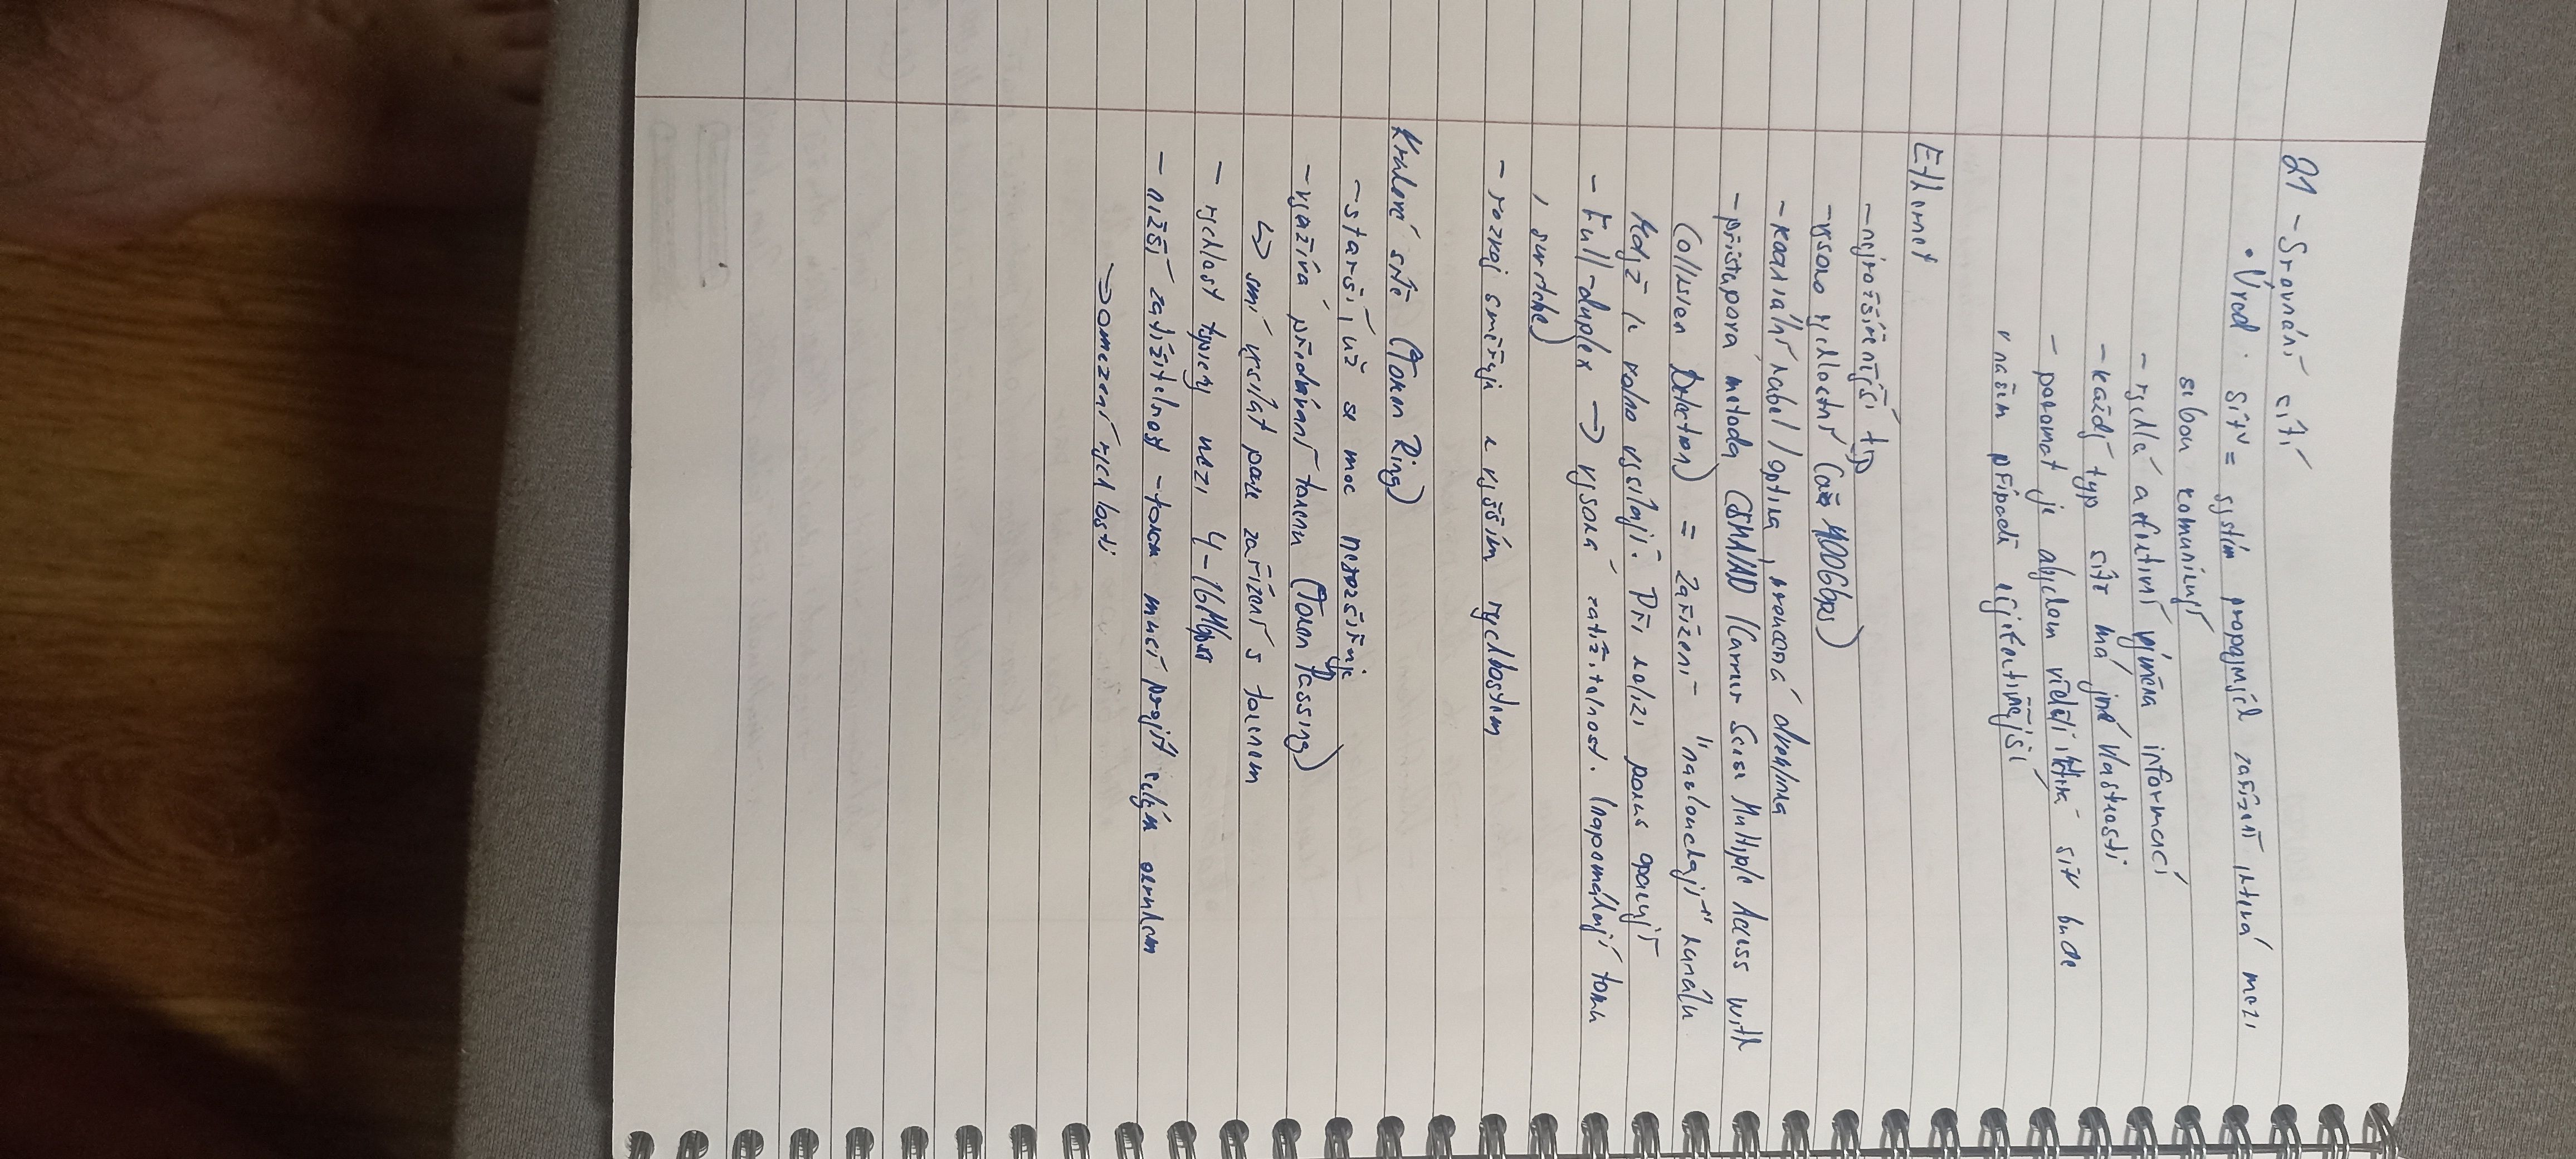 21 - Srovnání sítí
• Úvod: síť = systém propojující zařízení která mezi
sebou komunikují
- rychlá a efektivní výměna informací
- každý typ sítě má jiné vlastnosti
- porovnat je abychom věděli která síť bude
v našem případě nejefektivnější
Ethernet
- nejrozšířenější typ
- vysoké rychlosti (až 400Gbps)
- koaxiální kabel / optika, kroucená dvoulinka
- přístupová metoda CSMA/AD (Carrier Sense Multiple Access with
Collision Detection) = Zařízení "naslouchají" kanálu
když je volno vysílají. Při kolizi pokus opakují
- Full-duplex → vysoká zatížitelnost. (napomáhají tomu
i switche)
- rozvoj směřuje k vyšším rychlostem
Kruhové sítě (Token Ring)
- starší, už se moc nerozšiřuje
- využívá předávání tokenu (Token Passing)
↳ smí vysílat pouze zařízení s tokenem
- rychlost typicky mezi 4-16Mbps
- nižší zatížitelnost - token musí projít celým okruhem
→ omezení rychlosti